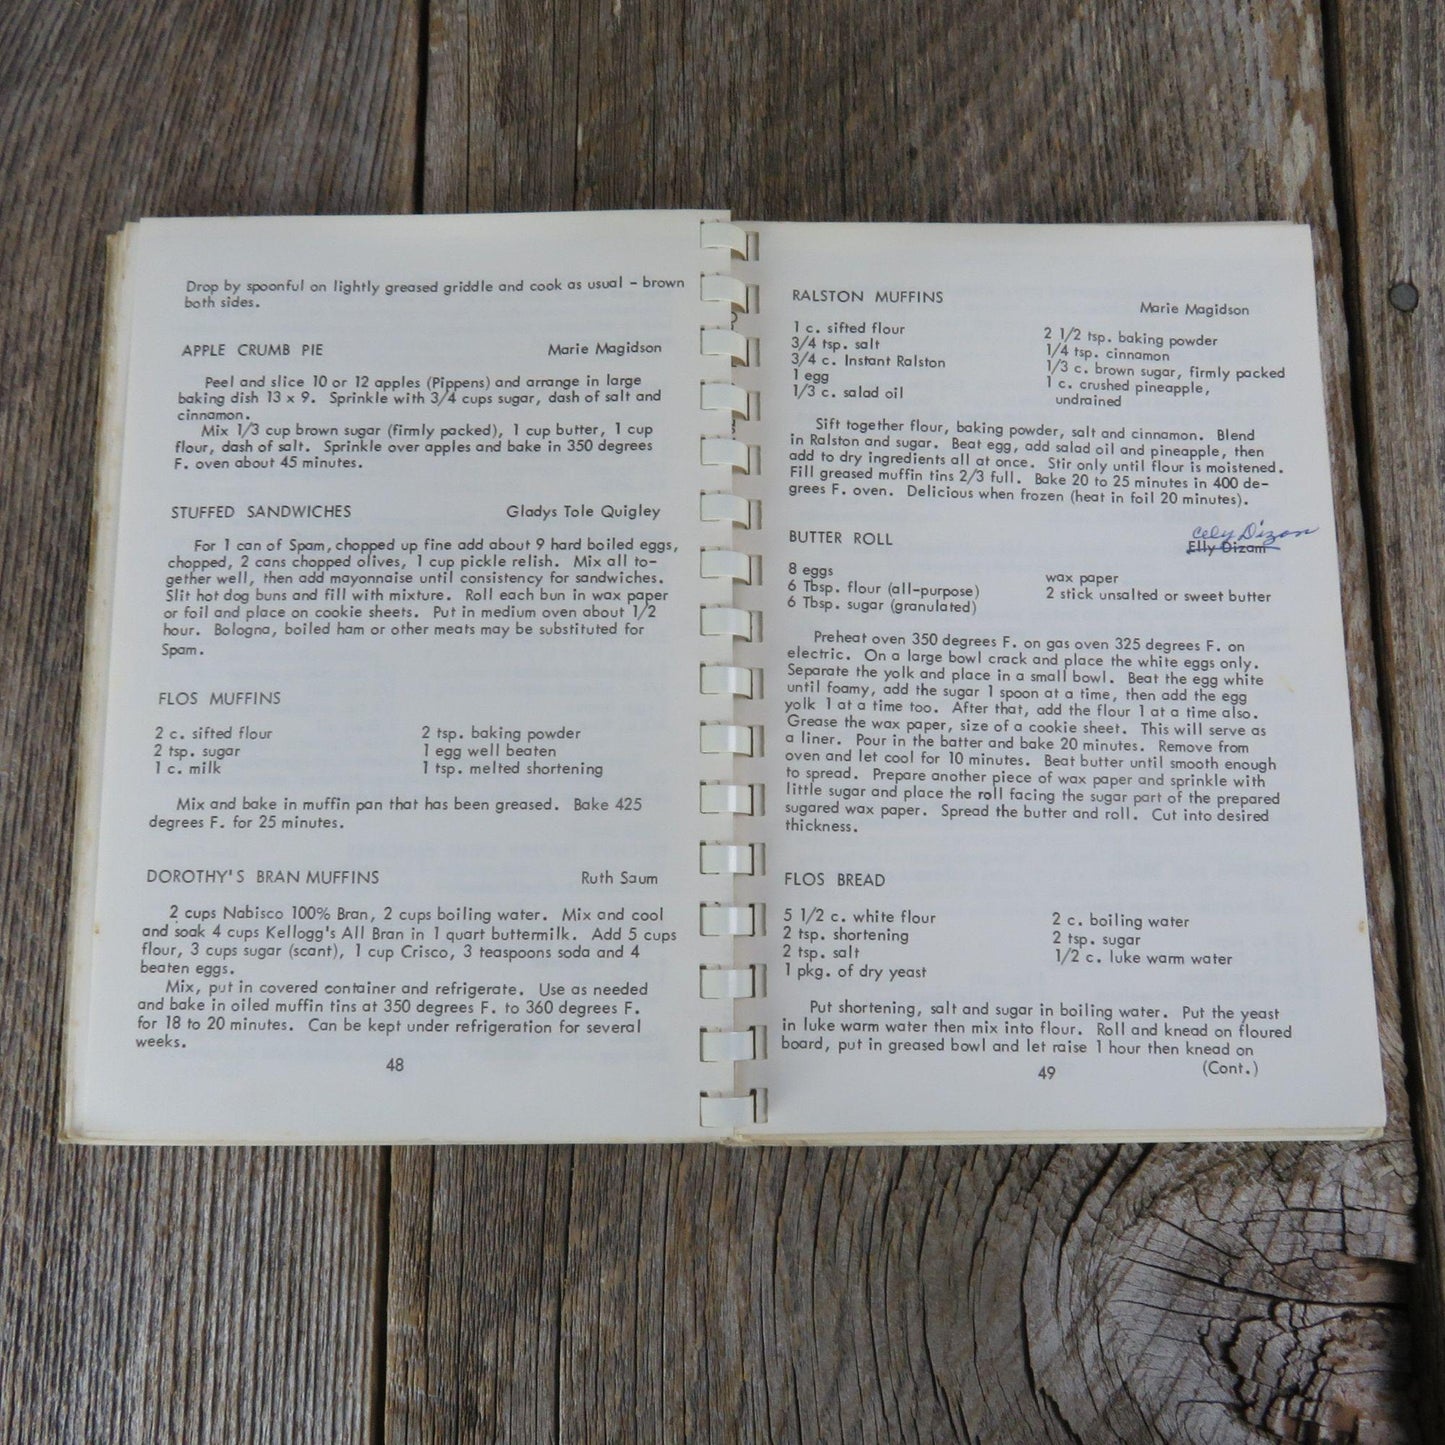 Drop by spoonful on lightly greased griddle and cook as usual - brown
both sides.
APPLE CRUMB PIE Marie Magidson
Peel and slice 10 or 12 apples (Pippens) and arrange in large
baking dish 13 x 9. Sprinkle with 3/4 cups sugar, dash of salt and
cinnamon.
Mix 1/3 cup brown sugar (firmly packed), 1 cup butter, 1 cup
flour, dash of salt. Sprinkle over apples and bake in 350 degrees
F. oven about 45 minutes.
STUFFED SANDWICHES Gladys Tole Quigley
For 1 can of Spam, chopped up fine add about 9 hard boiled eggs,
chopped, 2 cans chopped olives, 1 cup pickle relish. Mix all to-
gether well, then add mayonnaise until consistency for sandwiches.
Slit hot dog buns and fill with mixture. Roll each bun in wax paper
or foil and place on cookie sheets. Put in medium oven about 1/2
hour. Bologna, boiled ham or other meats may be substituted for
Spam.
FLOS MUFFINS
2 c. sifted flour 2 tsp. baking powder
2 tsp. sugar 1 egg well beaten
1 c. milk 1 tsp. melted shortening
Mix and bake in muffin pan that has been greased. Bake 425
degrees F. for 25 minutes.
DOROTHY'S BRAN MUFFINS Ruth Saum
2 cups Nabisco 100% Bran, 2 cups boiling water. Mix and cool
and soak 4 cups Kellogg's All Bran in 1 quart buttermilk. Add 5 cups
flour, 3 cups sugar (scant), 1 cup Crisco, 3 teaspoons soda and 4
beaten eggs.
Mix, put in covered container and refrigerate. Use as needed
and bake in oiled muffin tins at 350 degrees F. to 360 degrees F.
for 18 to 20 minutes. Can be kept under refrigeration for several
weeks.
48
RALSTON MUFFINS Marie Magidson
1 c. sifted flour 2 1/2 tsp. baking powder
3/4 tsp. salt 1/4 tsp. cinnamon
3/4 c. Instant Ralston 1/3 c. brown sugar, firmly packed
1 egg 1 c. crushed pineapple,
1/3 c. salad oil undrained
Sift together flour, baking powder, salt and cinnamon. Blend
in Ralston and sugar. Beat egg, add salad oil and pineapple, then
add to dry ingredients all at once. Stir only until flour is moistened.
Fill greased muffin tins 2/3 full. Bake 20 to 25 minutes in 400 de-
grees F. oven. Delicious when frozen (heat in foil 20 minutes).
Cely Dizon
BUTTER ROLL Elly Dizam
8 eggs wax paper
6 Tbsp. flour (all-purpose) 2 stick unsalted or sweet butter
6 Tbsp. sugar (granulated)
Preheat oven 350 degrees F. on gas oven 325 degrees F. on
electric. On a large bowl crack and place the white eggs only.
Separate the yolk and place in a small bowl. Beat the egg white
until foamy, add the sugar 1 spoon at a time, then add the egg
yolk 1 at a time too. After that, add the flour 1 at a time also.
Grease the wax paper, size of a cookie sheet. This will serve as
a liner. Pour in the batter and bake 20 minutes. Remove from
oven and let cool for 10 minutes. Beat butter until smooth enough
to spread. Prepare another piece of wax paper and sprinkle with
little sugar and place the roll facing the sugar part of the prepared
sugared wax paper. Spread the butter and roll. Cut into desired
thickness.
FLOS BREAD
5 1/2 c. white flour 2 c. boiling water
2 tsp. shortening 2 tsp. sugar
2 tsp. salt 1/2 c. luke warm water
1 pkg. of dry yeast
Put shortening, salt and sugar in boiling water. Put the yeast
in luke warm water then mix into flour. Roll and knead on floured
board, put in greased bowl and let raise 1 hour then knead on
49 (Cont.)